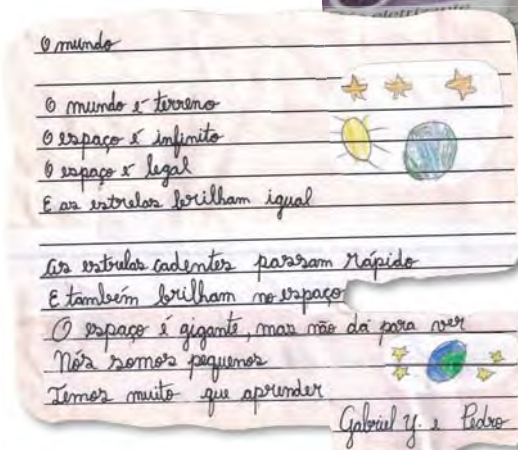 O mundo
O mundo é terreno
O espaço é infinito
O espaço é legal
E as estrelas brilham igual
As estrelas cadentes passam rápido
E também brilham no espaço
O espaço é gigante, mas não dá para ver
Nós somos pequenos
Temos muito que aprender
Gabriel Y. e Pedro